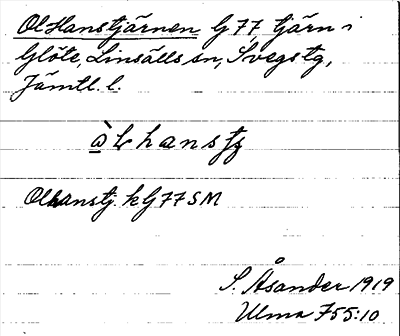 OlHanstjärnen G77, tjärn i
Glöte, Linsälls sn, Svegs tg,
Jämtl. l.
Olhanstj. k G77 SM
S. Åsander 1919
Ulma 755:10